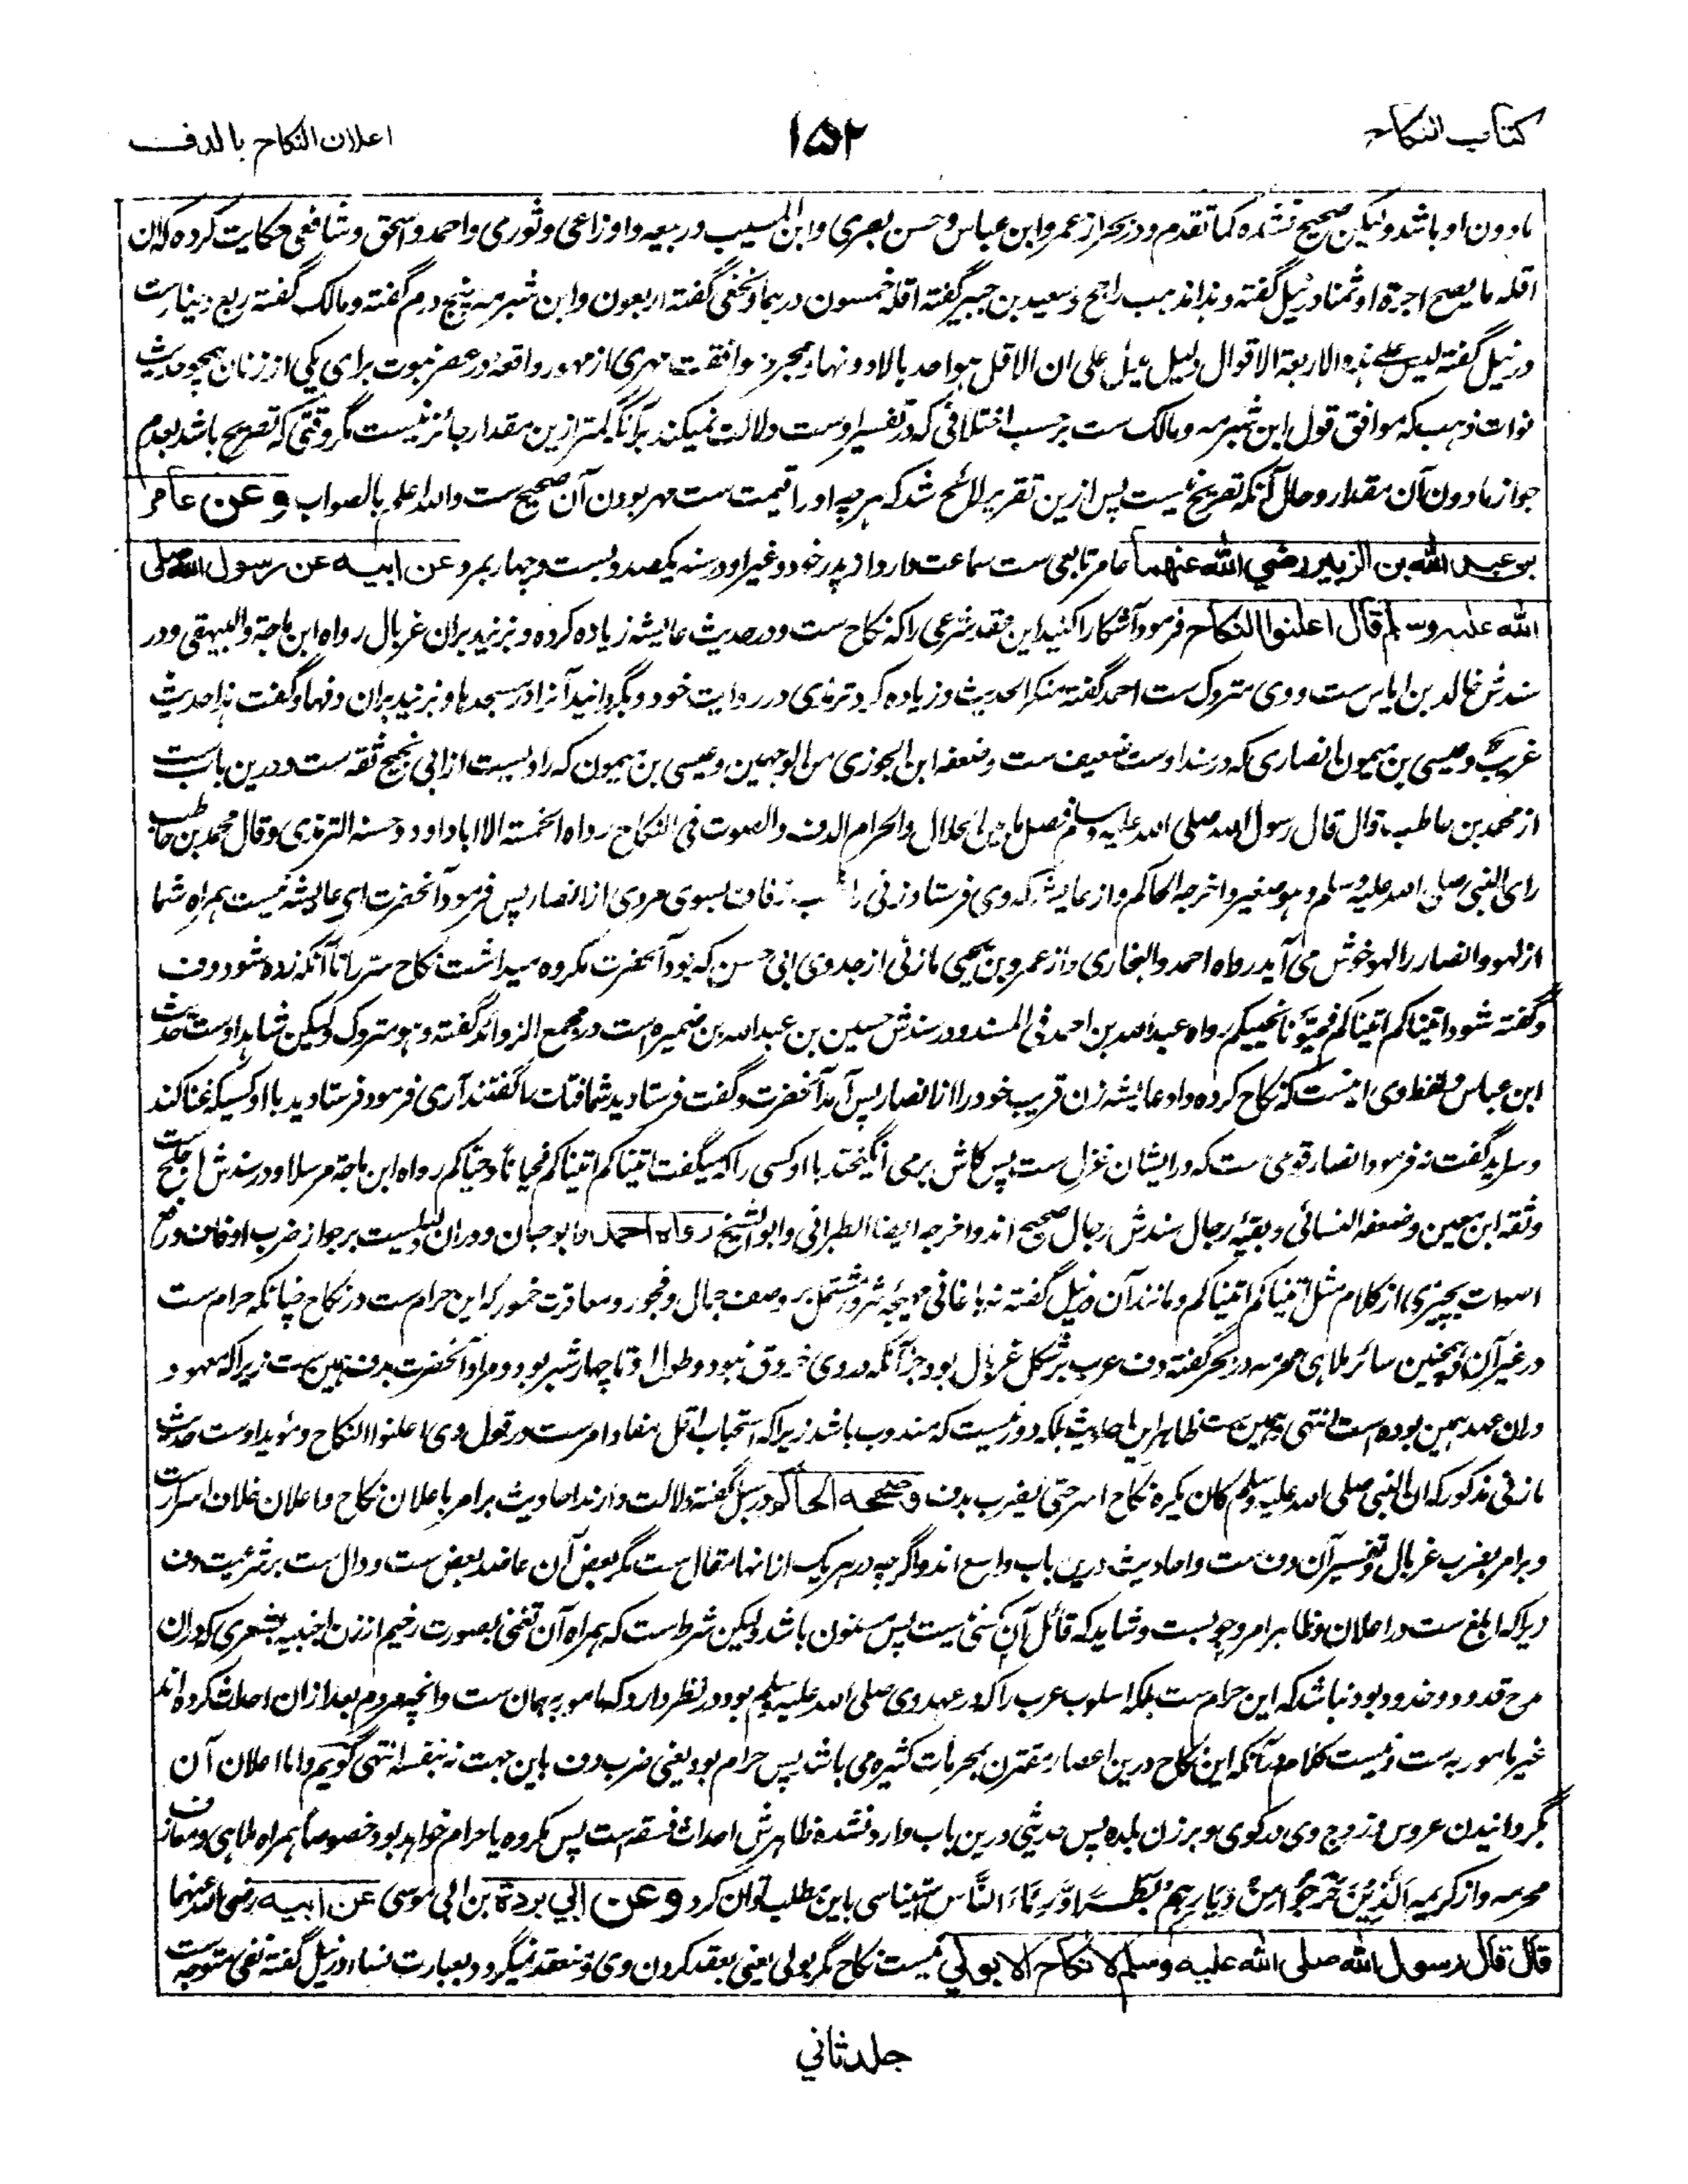 کتاب النکاح
۱۵۲
اعلان النکاح بالدف
مادون او باشد ولیکن صحیح نشده کما تقدم و در بحر از عمر و ابن عباس و حسن بصری و ابن المسیب و ربیعه و اوزاعی و ثوری و احمد و اسحق و شافعی حکایت کرده که ان
اقله ما یصح اجرة او ثمنا در نیل گفته و هذا مذهب راجح و سعید بن جبیر گفته اقله خمسون درهما و نخعی گفته اربعون و ابن شبرمه پنج درم گفته و مالک گفته ربع دینارست
در نیل گفته لیس علی هذه الاربعة الاقوال دلیل یدل علی ان الاقل هو احدها لا دونها و مجرد موافقت مهری از مهور واقعه در عصر نبوت برای یکی از زنان همچو حدیث
نوات ذهب که موافق قول ابن شبرمه و مالک ست برحسب اختلافی که در تفسیر اوست دلالت نمیکند بر آنکه کمتر ازین مقدار جائز نیست مگر وقتی که تصریح باشد بعدم
جواز مادون آن مقدار و حال آنکه تصریح نیست پس ازین تقریر لائح شد که هر چه او را قیمت ست مهر بودن آن صحیح ست والله اعلم بالصواب وعن عامر
بن عبد الله بن الزبير رضي الله عنهما عامر تابعی ست سماعت دارد از پدر خود و غیر او در سنه یکصد و بست و چهار بمرد عن ابيه عن رسول الله صلى
الله عليه وسلم قال اعلنوا النكاح فرمود آشکارا کنید این عقد شرعی را که نکاح ست و در حدیث عایشه زیاده کرده و بزنید بران غربال رواه ابن ماجة والبیهقی و در
سندش خالد بن ایاس ست و وی متروک ست احمد گفته منکر الحدیث و زیاده کرد ترمذی در روایت خود و بگردانید آنرا در مسجدها و بزنید بران دفها و گفت هذا حدیث
غریب و عیسی بن میمون انصاری که در سند اوست ضعیف ست و ضعفه ابن الجوزی من الوجهین و عیسی بن میمون که راویست از ابی نجیح ثقه ست و درین باب ست
از محمد بن حاطب قال قال رسول الله صلی الله علیه وسلم فصل ما بین الحلال والحرام الدف والصوت فی النکاح رواه الخمسة الا ابا داود و حسنه الترمذی وقال محمد بن حاطب
رای النبی صلی الله علیه وسلم وهو صغیر و اخرجه الحاکم و از عایشه که وی فرستاد زنی را زفاف بسوی مردی از انصار پس فرمود آنحضرت ای عایشه نیست همراه شما
از لهو و انصار را لهو خوش می آید رواه احمد والبخاری و از عمرو بن یحیی مازنی از جد وی ابی حسن که بود آنحضرت مکروه میداشت نکاح سر را تا آنکه زده شود دف
و گفته شود اتیناکم اتیناکم فحیونا نحییکم رواه عبدالله بن احمد فی المسند و در سندش حسین بن عبدالله بن ضمیره است در مجمع الزوائد گفته و هو متروک ولیکن شاهد اوست حدیث
ابن عباس و لفظ وی اینست که نکاح کرده داد عایشه زن قریب خود را از انصار پس آمد آنحضرت و گفت فرستادید شما فتات را گفتند آری فرمود فرستادید با او کسیکه غنا کند
وسراید گفت نه فرمود انصار قومی ست که در ایشان غزل ست پس کاش برمی انگیختید با او کسی را که میگفت اتیناکم اتیناکم فحیانا وحیاکم رواه ابن ماجة مرسلا و در سندش اجلح ست
وثقه ابن معین و ضعفه النسائی و بقیه رجال سندش رجال صحیح اند و اخرجه ایضا الطبرانی و ابو الشیخ رواه احمد و ابو حبان و دران دلیلست بر جواز ضرب ادفاف و رفع
اصوات بچیزی از کلام مثل اتیناکم اتیناکم و مانند آن در نیل گفته نه باغانی مهیجه شرور مشتمل بر وصف جمال و فجور و معاقرت خمور که این حرام ست در نکاح چنانکه حرام ست
در غیر آن و همچنین سائر ملاهی محرمه در بحر گفته دف عرب بر شکل غربال بود جز آنکه در وی خروق نبود و طول او تا چهار شبر بود و مراد آنحضرت بدف همین ست زیرا که معهود
دران عهد همین بوده است انتهی و همین ست ظاهر این احادیث بلکه دور نیست که مندوب باشد زیرا که استحباب اقل مفاد امرست در قول وی اعلنوا النکاح و مؤید اوست حدیث
مازنی مذکور که ان النبی صلی الله علیه وسلم کان یکره نکاح السر حتی یضرب بدف وصححه الحاكم در سبل گفته دلالت دارند احادیث بر امر باعلان نکاح و اعلان خلاف اسرار ست
و بر امر بضرب غربال و تفسیر آن دف ست و احادیث درین باب واسع اند و اگرچه در هر یک ازانها مقال ست مگر بعض آن عاضد بعض ست و دال ست بر شرعیت دف
زیرا که ابلغ ست در اعلان و ظاهر امر وجوبست و شاید که قائل آن کسی نیست پس مسنون باشد ولیکن شرط است که همراه آن تغنی بصورت رخیم از زن اجنبیه بشعری که دران
مدح قدود و خدود بود نباشد که این حرام ست بلکه اسلوب عرب را که در عهد وی صلی الله علیه وسلم بود در نظر دارد که مامور به همان ست و انچه مردم بعد ازان احداث کرده اند
غیر مامور به ست و نیست کلام در آنکه این نکاح درین اعصار مقترن بمحرمات کثیره می باشد پس حرام بود یعنی ضرب دف باین جهت نه بنفسه انتهی گویم و اما اعلان آن
بگردانیدن عروس و زوج وی در کوی و برزن بلده پس حدیثی درین باب وارد نشده ظاهرش احداث فسقه است پس مکروه یا حرام خواهد بود خصوصا همراه ملاهی و معازف
محرمه و از کریمه اَلَّذِیْنَ خَرَجُوْا مِنْ دِیَارِهِمْ بَطَرًا وَّرِئَاءَ النَّاسِ استیناسی باین مطلب توان کرد وعن ابي بردة بن ابی موسی عن ابيه رضی الله عنهما
قال قال رسول الله صلى الله عليه وسلم لا نكاح الا بولي نیست نکاح مگر بولی یعنی بعقد کردن وی و منعقد نمیگردد بعبارت نساء در نیل گفته نفی متوجه ست
جلد ثانی